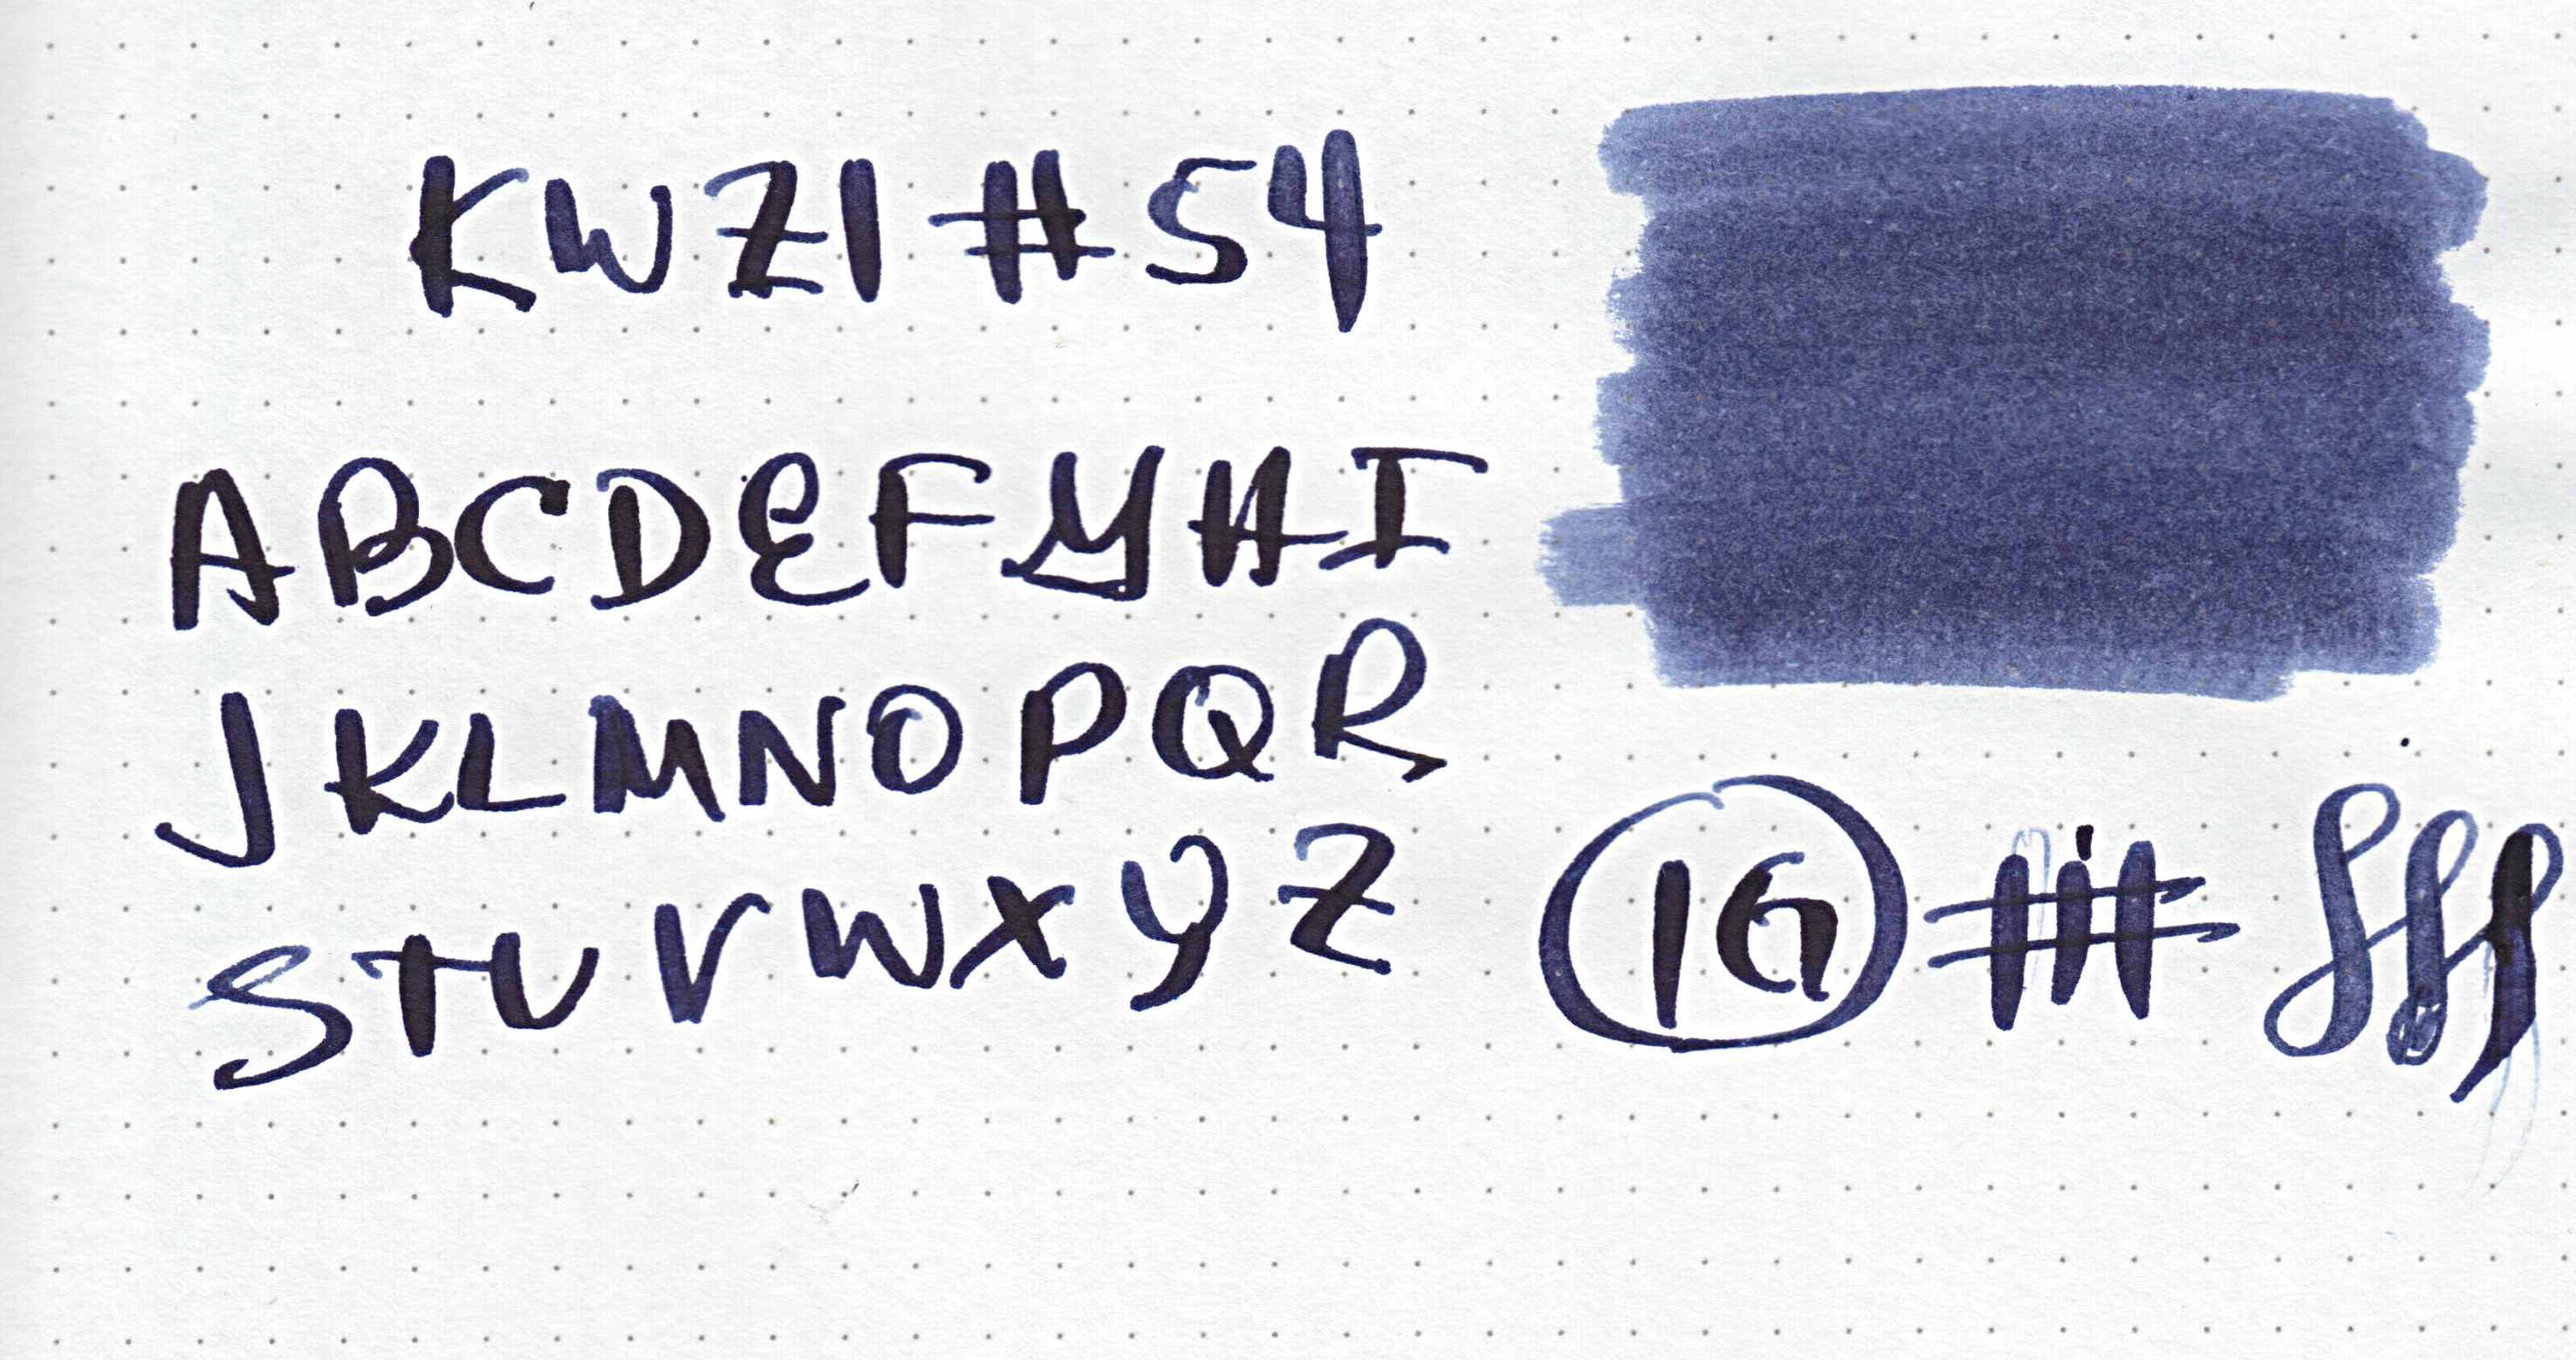 KWZI #54
ABCDEFGHI
JKLMNOPQR
STUVWXYZ
IG